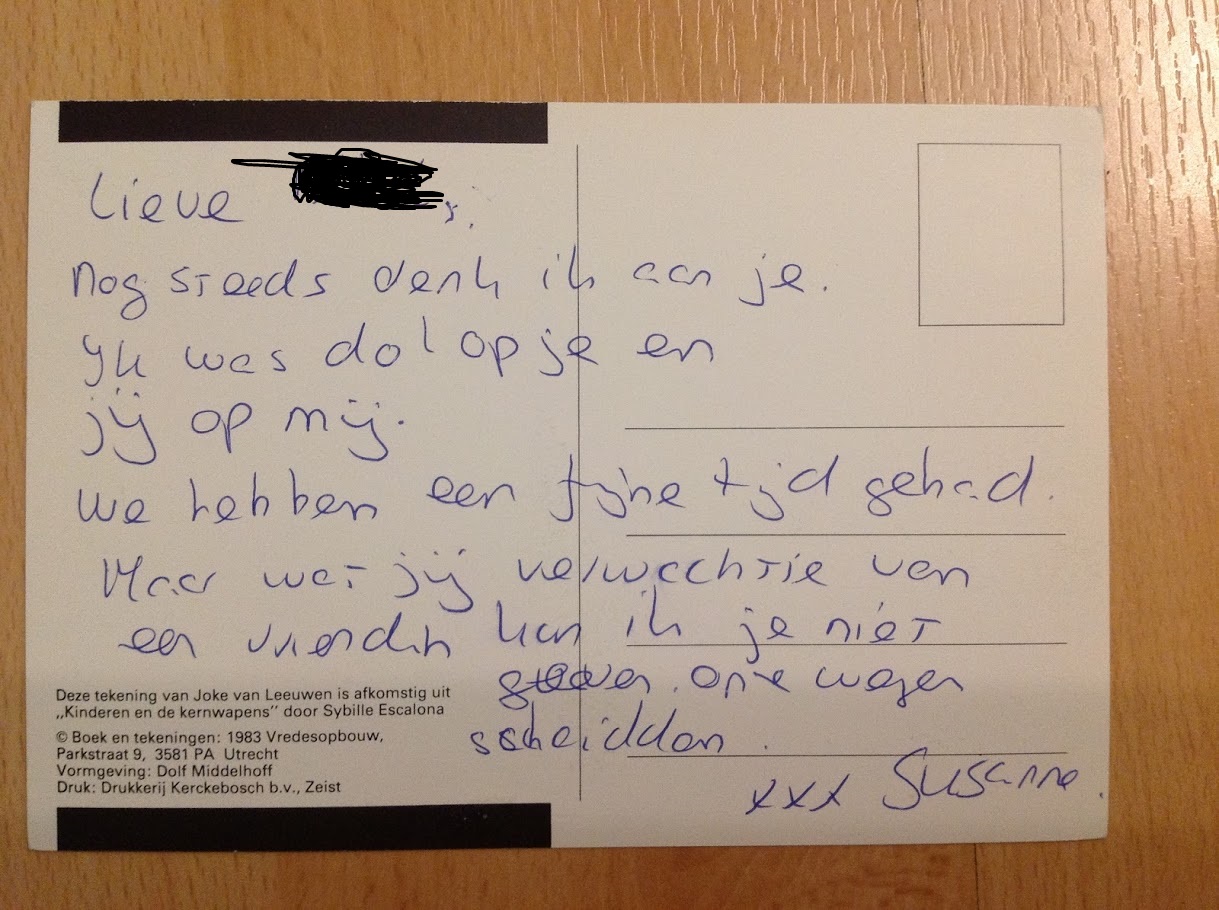 Lieve
nog steeds denk ik aan je.
Ik was dol op je en
jij op mij.
we hebben een fijne tijd gehad.
Maar wat jij verwachtte van
een vriendin kan ik je niet
geven. onze wegen
scheidden.
xxx Susanne.
Deze tekening van Joke van Leeuwen is afkomstig uit
„Kinderen en de kernwapens” door Sybille Escalona
© Boek en tekeningen: 1983 Vredesopbouw,
Parkstraat 9, 3581 PA Utrecht
Vormgeving: Dolf Middelhoff
Druk: Drukkerij Kerckebosch b.v., Zeist